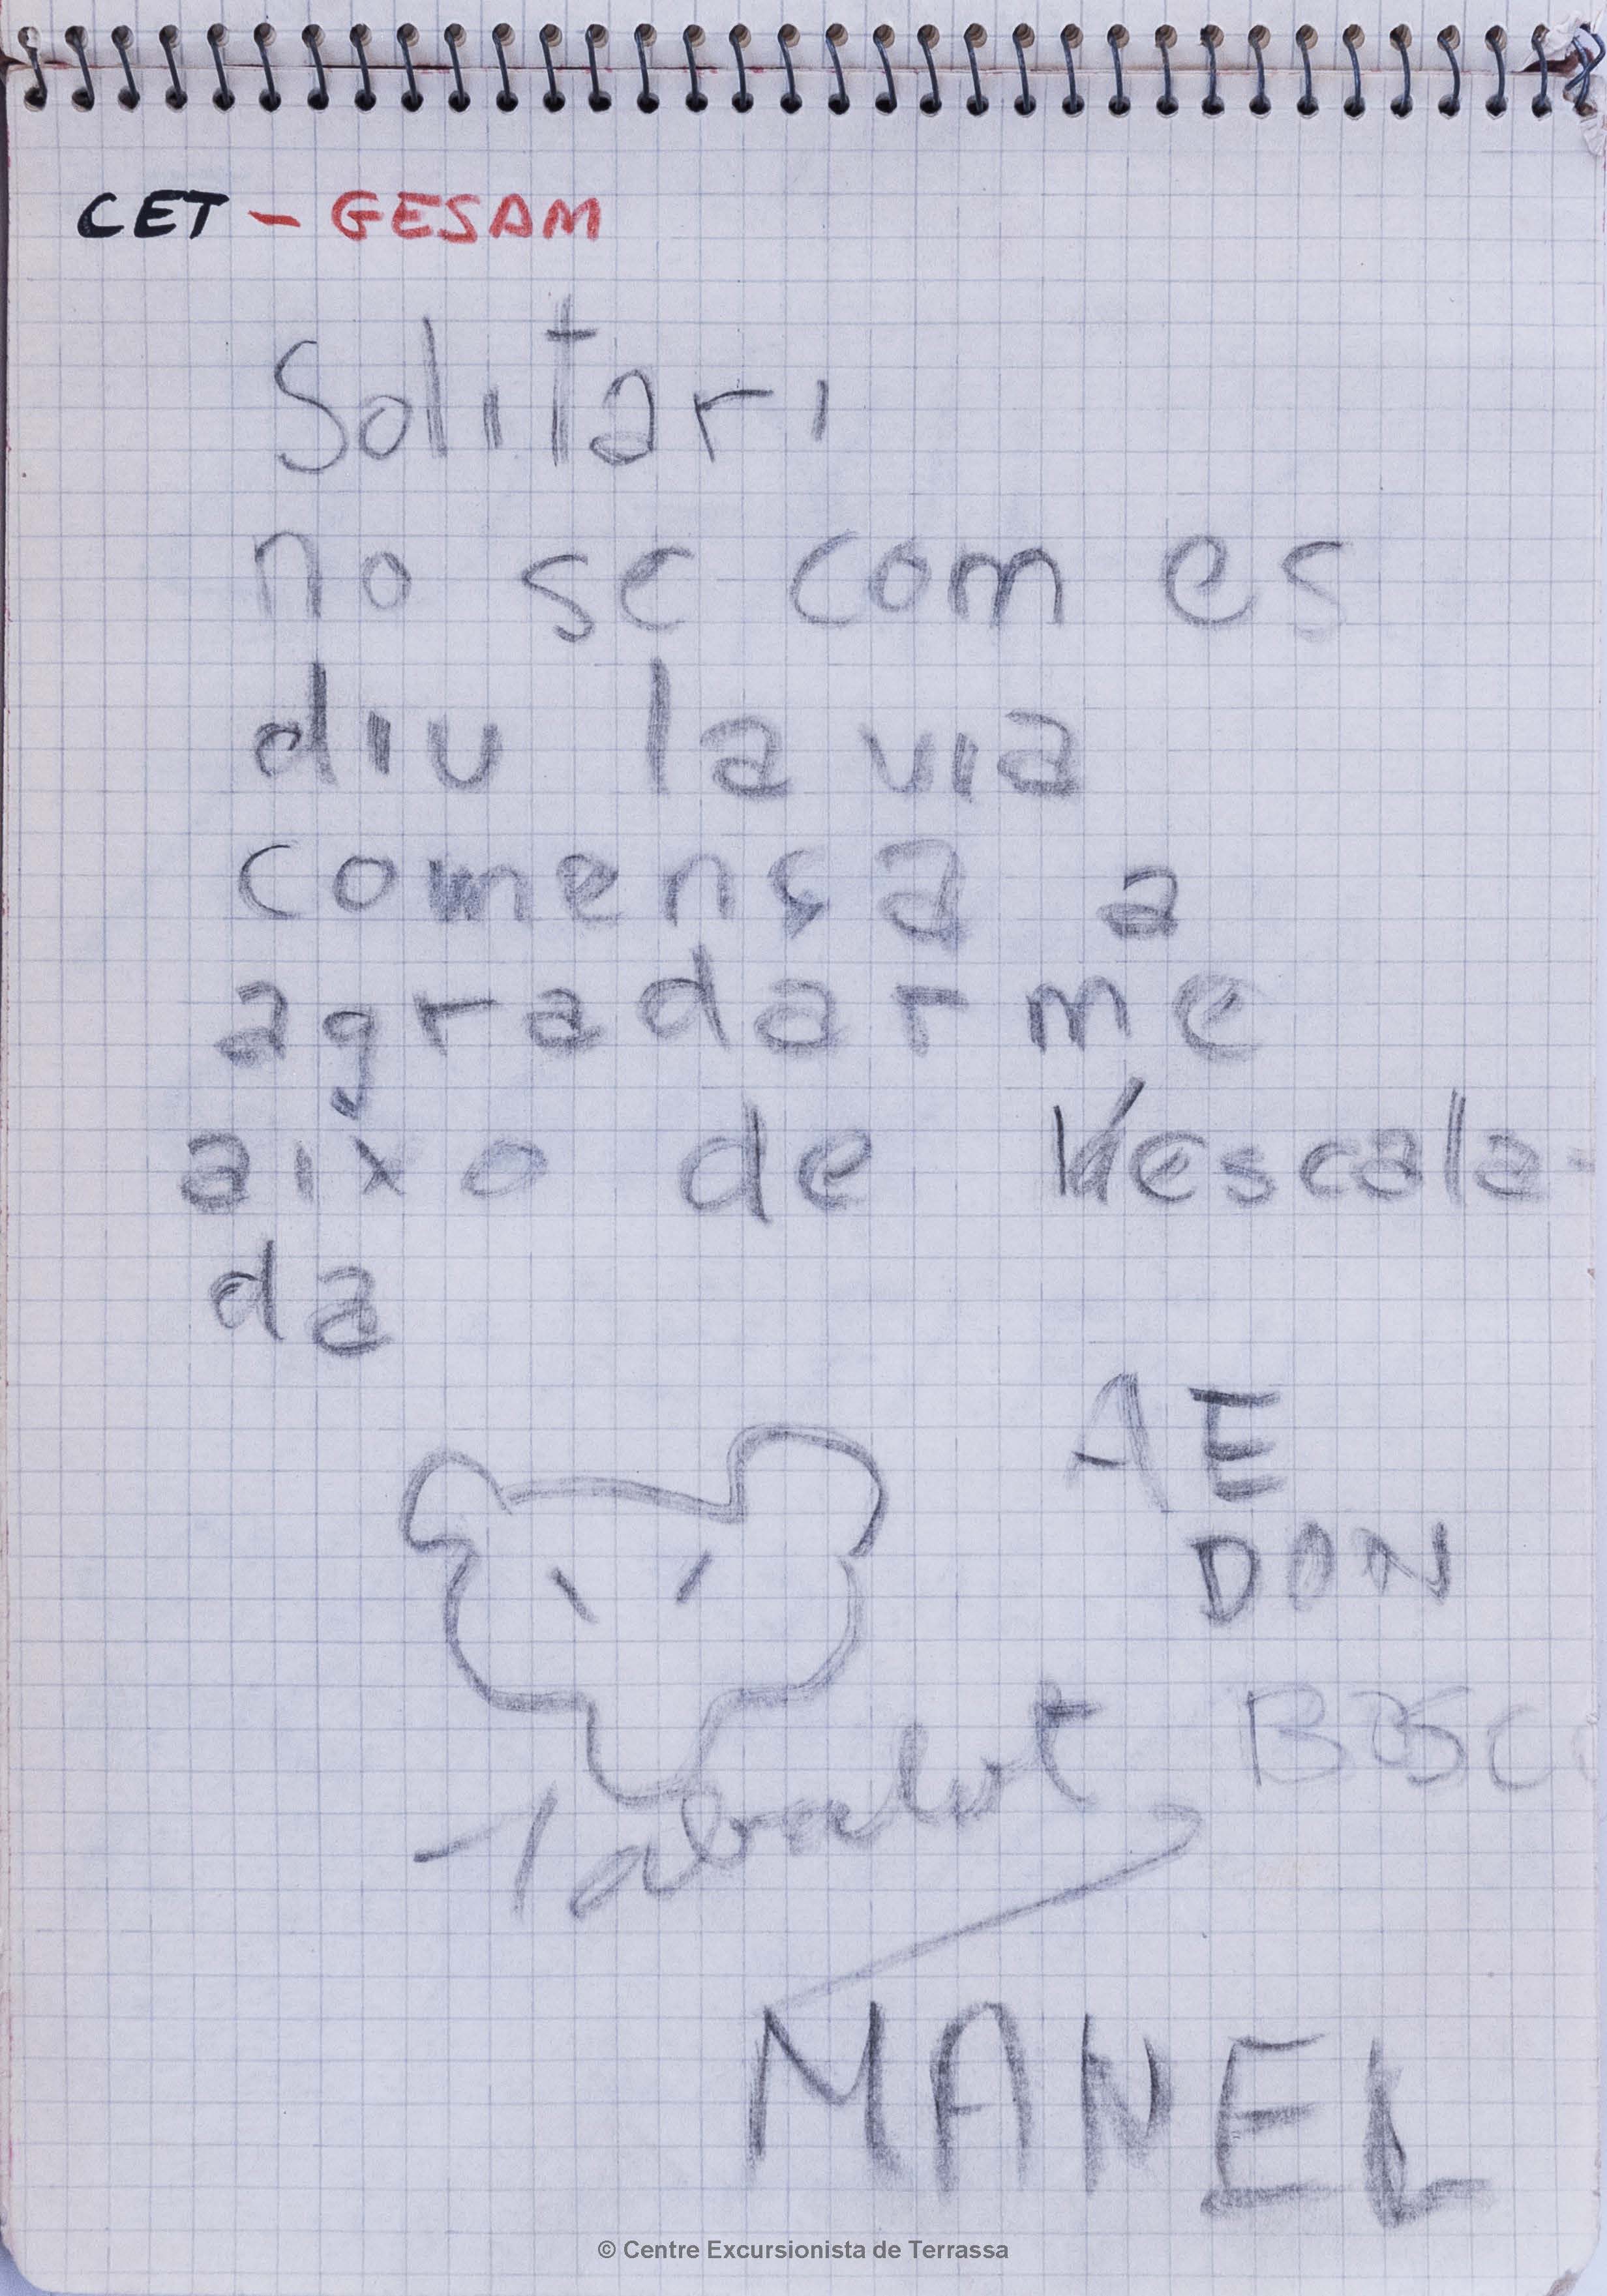 CET - GESAM
Solitari
no se com es
diu la via
comensa a
agradarme
aixo de l'escala-
da
AE
DON
BOSCO
MANEL
© Centre Excursionista de Terrassa